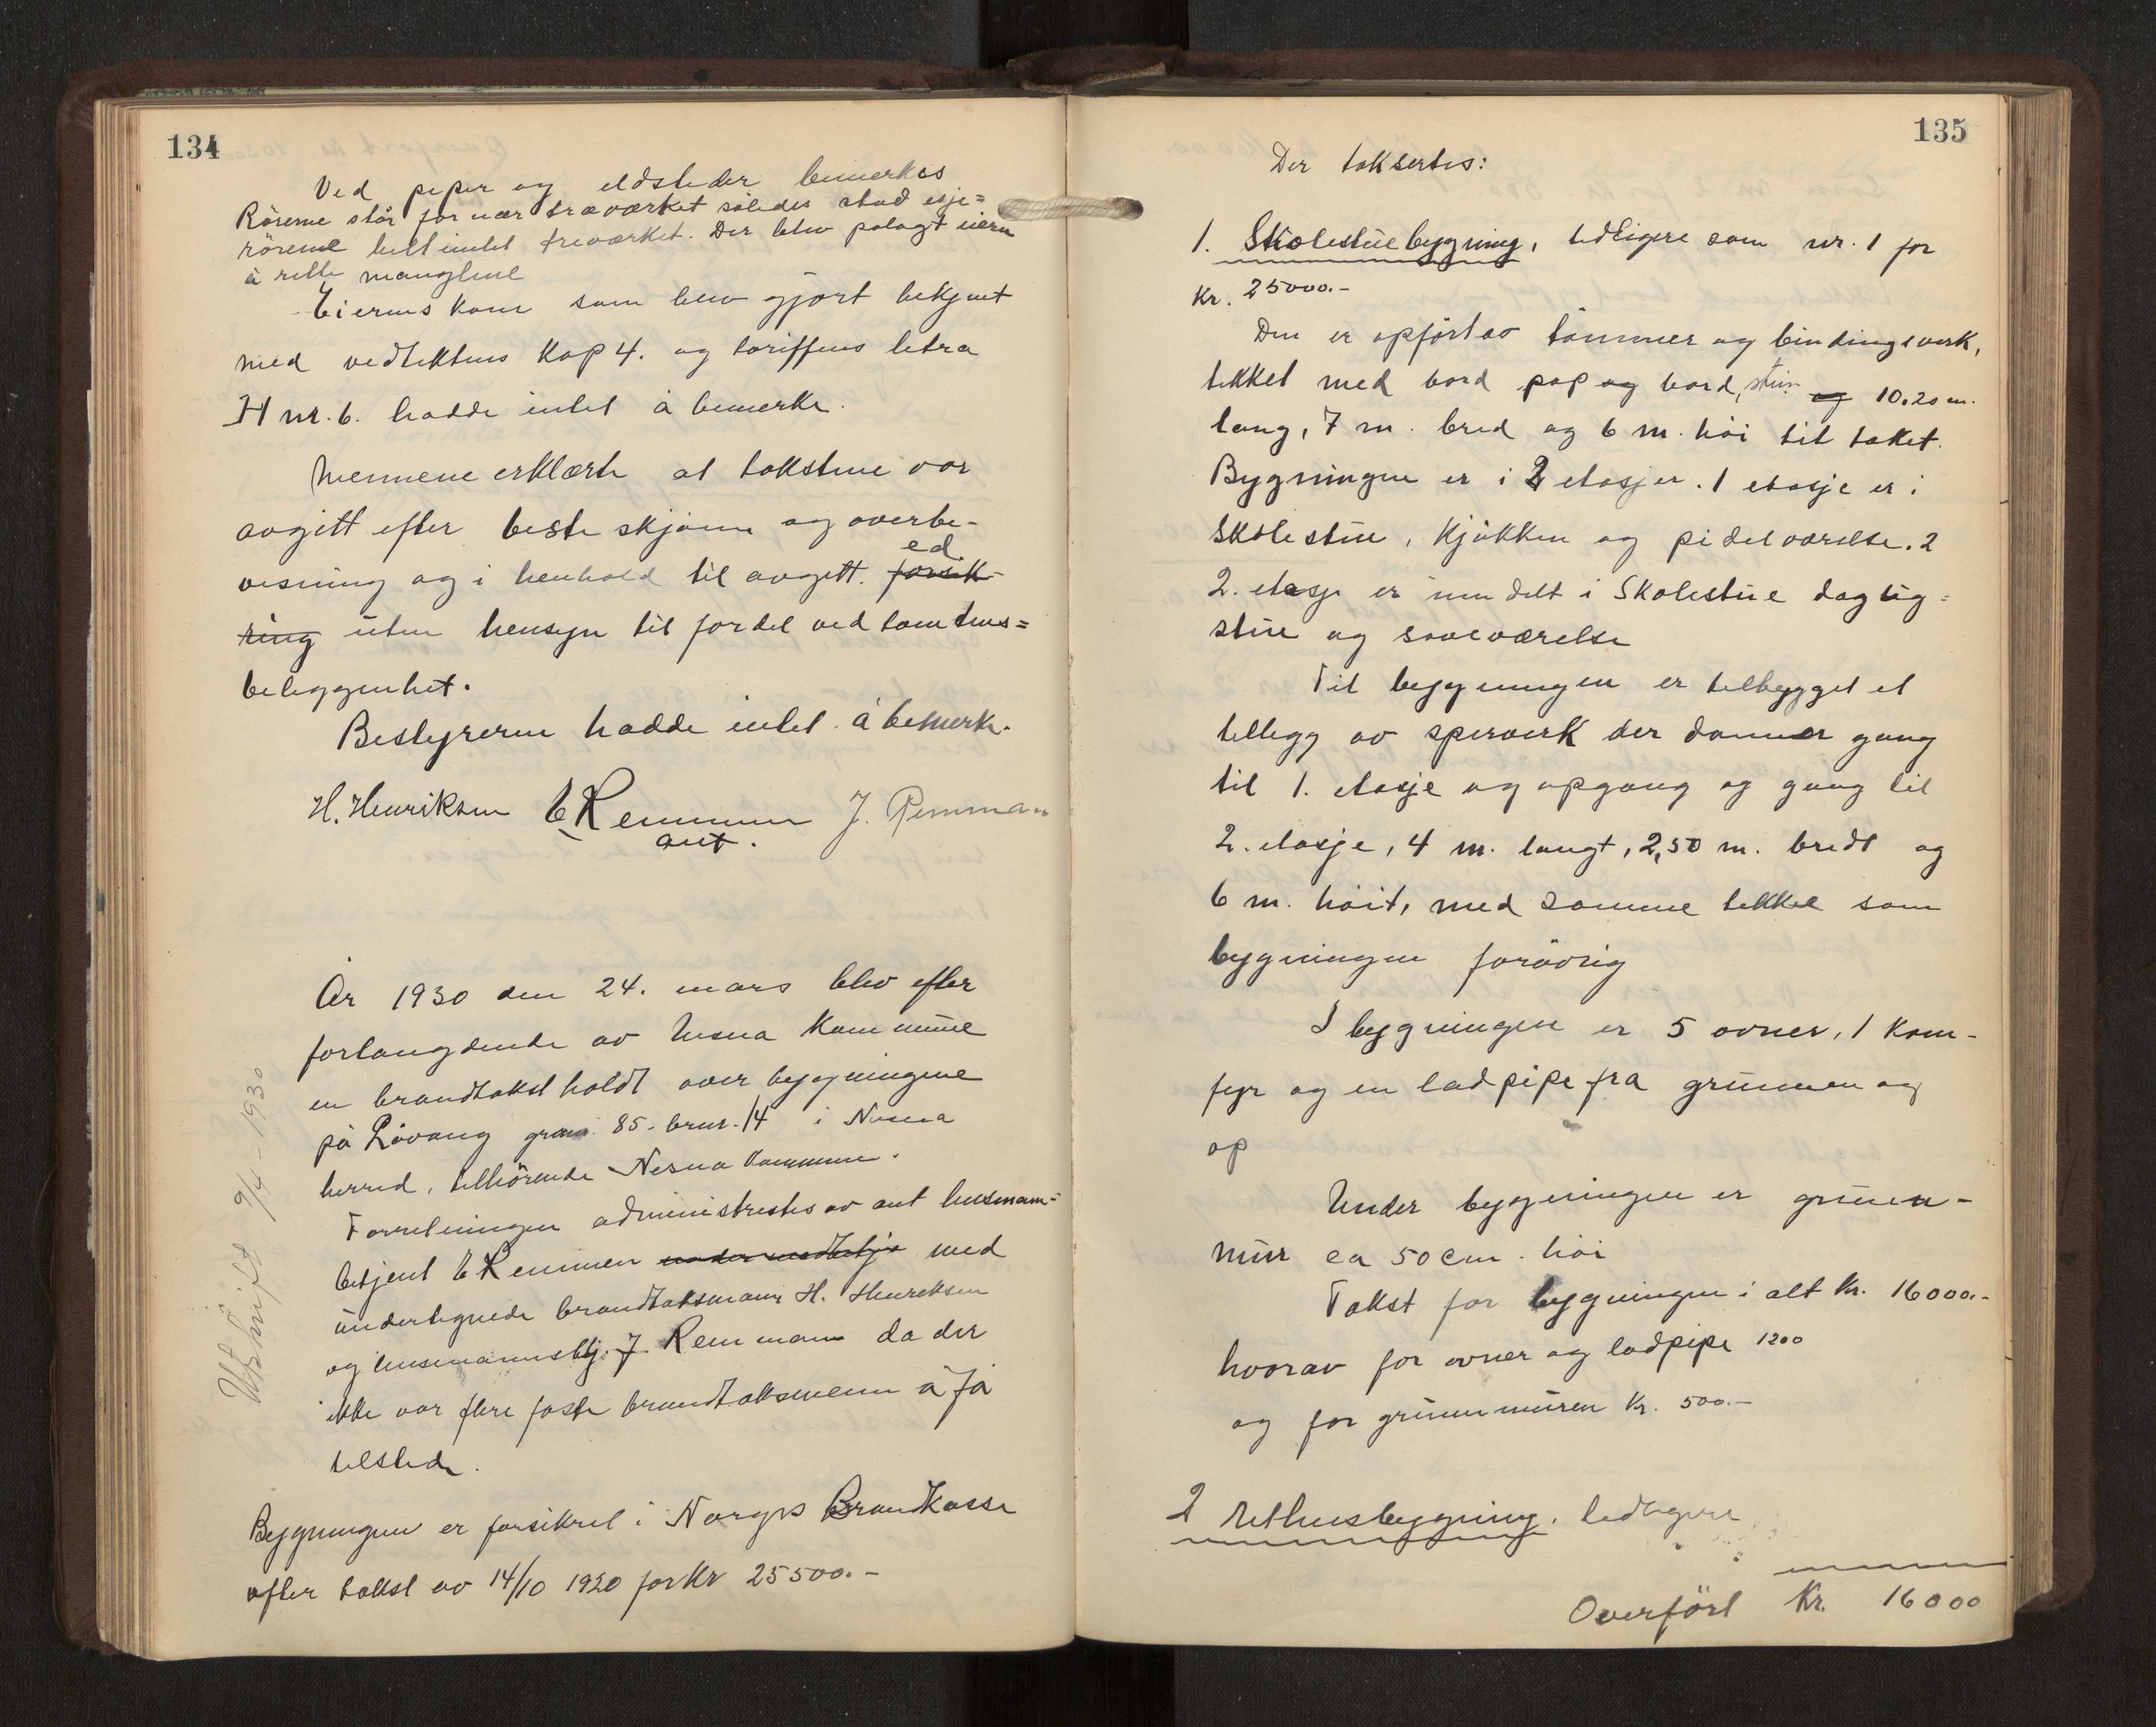 134
Ved piper og eldsteder bemerkes
Rörene står for nær træværket således stod
rörene helt intet treværket. Der blev pålagt eieren
å rette manglene
Eierens kone som blev gjort bekjent
med vedtektens Kap 4. og tariffens letra
H nr. 6. hadde intet å bemerke.
Mennene erklærte at takstene var
avgitt efter beste skjönn og overbe-
ed
visning og i henhold til avgitt. forsik-
ring uten hensyn til fordel ved tomtens=
beliggenhet.
Bestyreren hadde intet å bemerke.
H. Henriksen E Remmen J. Remman
aut.
År 1930 den 24. mars blev efter
forlangdende av Nesna Kommune
en brandtakst holdt over bygningene
på Lövang grnr. 85. brnr. 14 i Nesna
herred, tilhörende Nesna kommune.
Forretningen administrertes av aut lensmann=
betjent E Remmen med
undertegnede brandtaksmann H. Henriksen
og lensmannsbtj. J. Remman da der
ikke var flere faste brandtaksmenn å få
tilstede.
Utskrift 9/4 - 1930
Bygningen er forsikret i Norges Brandkasse
efter takst av 14/10 1920 for Kr 25500.-
135
Der taksertes:
1. Skolestuebygning, tidligere som nr. 1 for
Kr. 25000.-
Den er opfört av tömmer og bindingsverk,
tekket med bord pap og bord, og 10.20 m.
lang, 7 m. bred og 6 m. höi til taket.
Bygningen er i 2 etasjer. 1 etasje er i
Skolestue, Kjökken og værelse. 2
2. etasje er inndelt i Skolestue daglig=
stue og soveværelse
Til bygningen er tilbygget et
tillegg av sperverk der danner gang
til 1. etasje og opgang og gang til
2. etasje, 4 m. langt, 2,50 m. bredt og
6 m. höit, med samme tekke som
bygningen forövrig
I bygningen er 5 ovner, 1 kom-
fyr og en ladpipe fra grunnen og
op
Under bygningen er grunn-
mur ca 50 cm. höi
Takst for bygningen i alt Kr. 16000.-
hvorav for ovner og ladpipe 1200
og for grunnmuren Kr. 500.-
2 Uthusbygning. tidligere
Overfört Kr. 16000